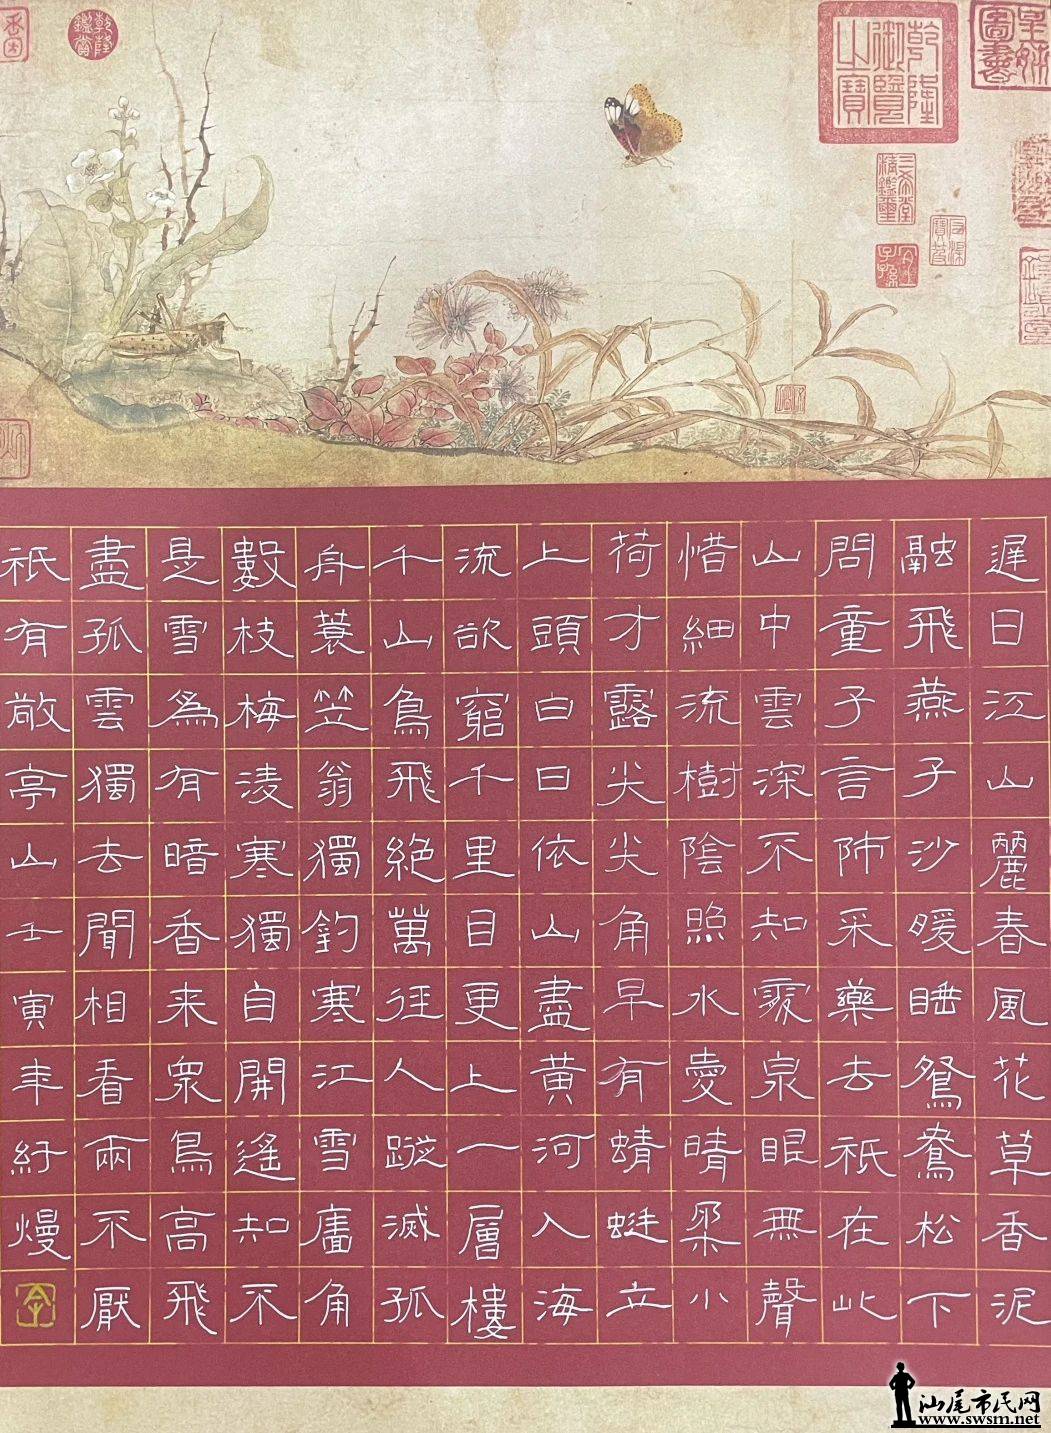 乾隆御覽之寶
乾隆鑑賞
三希堂精鑑璽
宜子孫
遲日江山麗春風花草香泥
融飛燕子沙暖睡鴛鴦松下
問童子言師采藥去祇在此
山中雲深不知處泉眼無聲
惜細流樹陰照水愛晴柔小
荷才露尖尖角早有蜻蜓立
上頭白日依山盡黃河入海
流欲窮千里目更上一層樓
千山鳥飛絕萬徑人蹤滅孤
舟蓑笠翁獨釣寒江雪廧角
數枝梅淩寒獨自開遙知不
是雪為有暗香来眾鳥高飛
盡孤雲獨去聞相看兩不厭
祇有敬亭山壬寅年紆熳
汕尾市民网
www.swsm.net